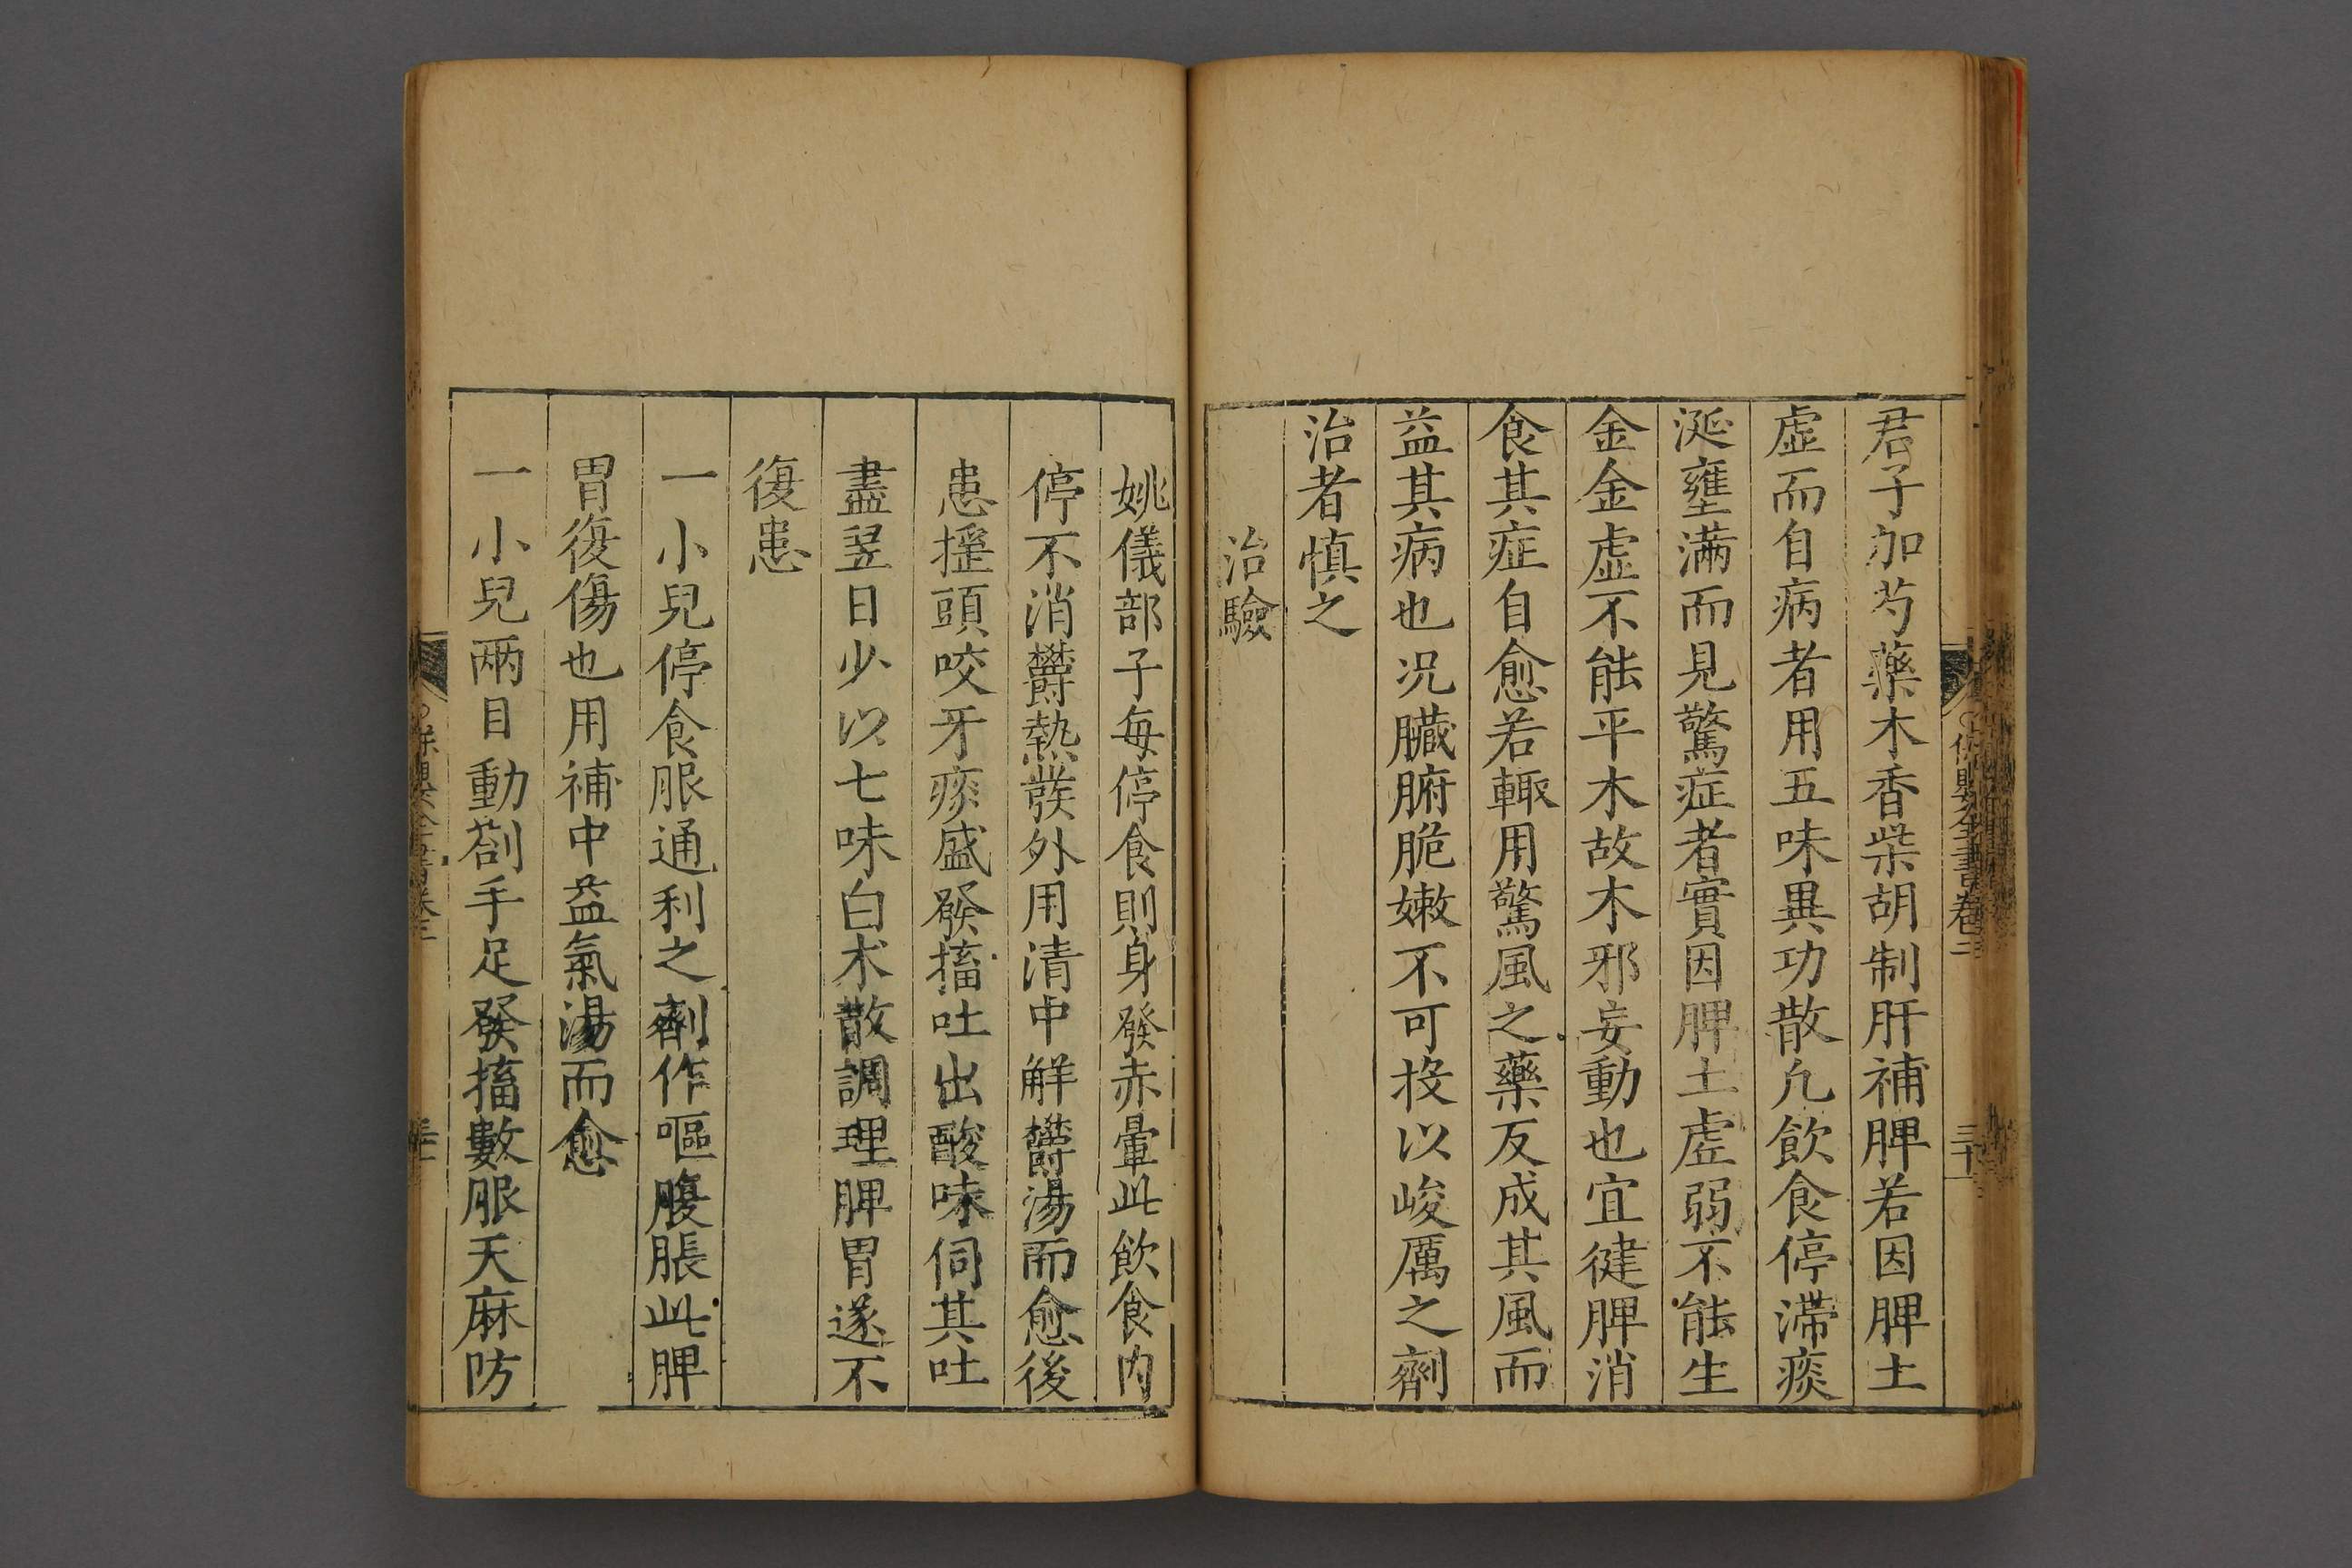 君子加芍藥木香柴胡制肝補脾若因脾土
虛而自病者用五味異功散凡飲食停滯痰
涎壅滿而見驚症者實因脾土虛弱不能生
金金虛不能平木故木邪妄動也宜健脾消
食其症自愈若輒用驚風之藥反成其風而
益其病也况臟腑脆嫩不可投以峻厲之劑
治者慎之
治驗
姚儀部子每停食則身發赤暈此飲食內
停不消欝熱發外用清中解欝湯而愈後
患搖頭咬牙痰盛發搐吐出酸味伺其吐
盡翌日少以七味白朮散調理脾胃遂不
復患
一小兒停食服通利之劑作嘔腹脹此脾
胃復傷也用補中益氣湯而愈
一小兒兩目動劄手足發搐數服天麻防